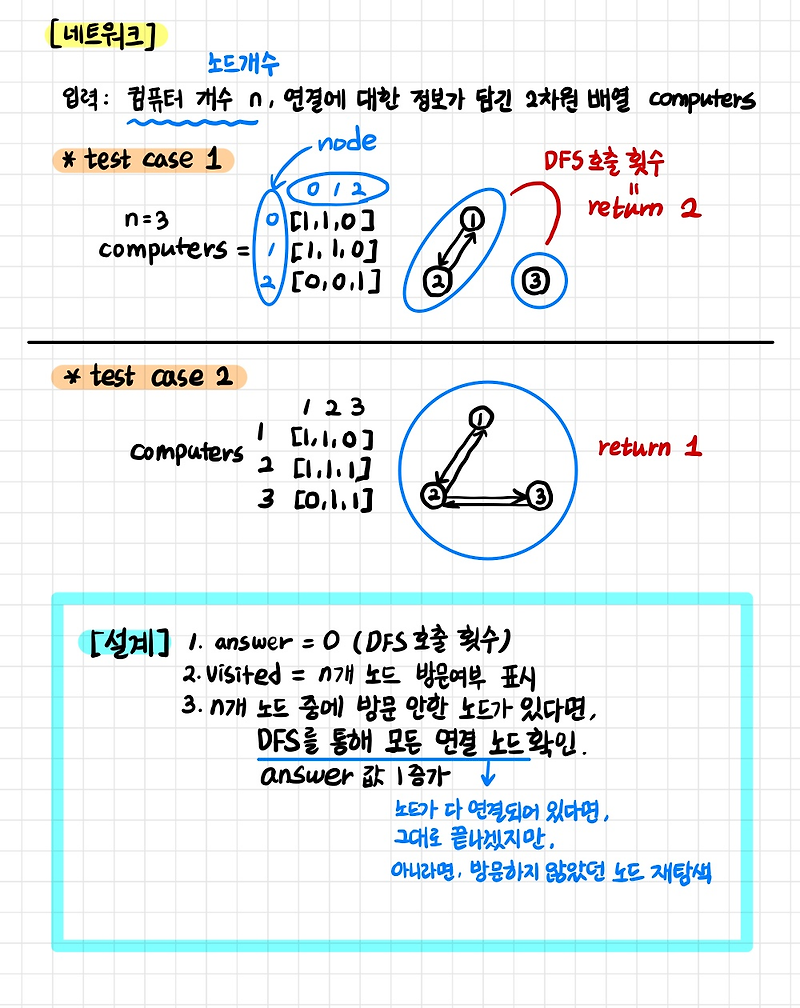 [네트워크]
노드개수
입력: 컴퓨터 개수 n, 연결에 대한 정보가 담긴 2차원 배열 computers
* test case 1
node
DFS 호출 횟수
=
return 2
0 1 2
n=3
computers =
0 [1,1,0]
1 [1,1,0]
2 [0,0,1]
1
2
3
* test case 2
1 2 3
computers
1 [1,1,0]
2 [1,1,1]
3 [0,1,1]
1
2
3
return 1
[설계] 1. answer = 0 (DFS 호출 횟수)
2. visited = n개 노드 방문여부 표시
3. n개 노드 중에 방문 안한 노드가 있다면,
DFS를 통해 모든 연결 노드 확인.
answer 값 1증가
노드가 다 연결되어 있다면,
그대로 끝나겠지만,
아니라면, 방문하지 않았던 노드 재탐색